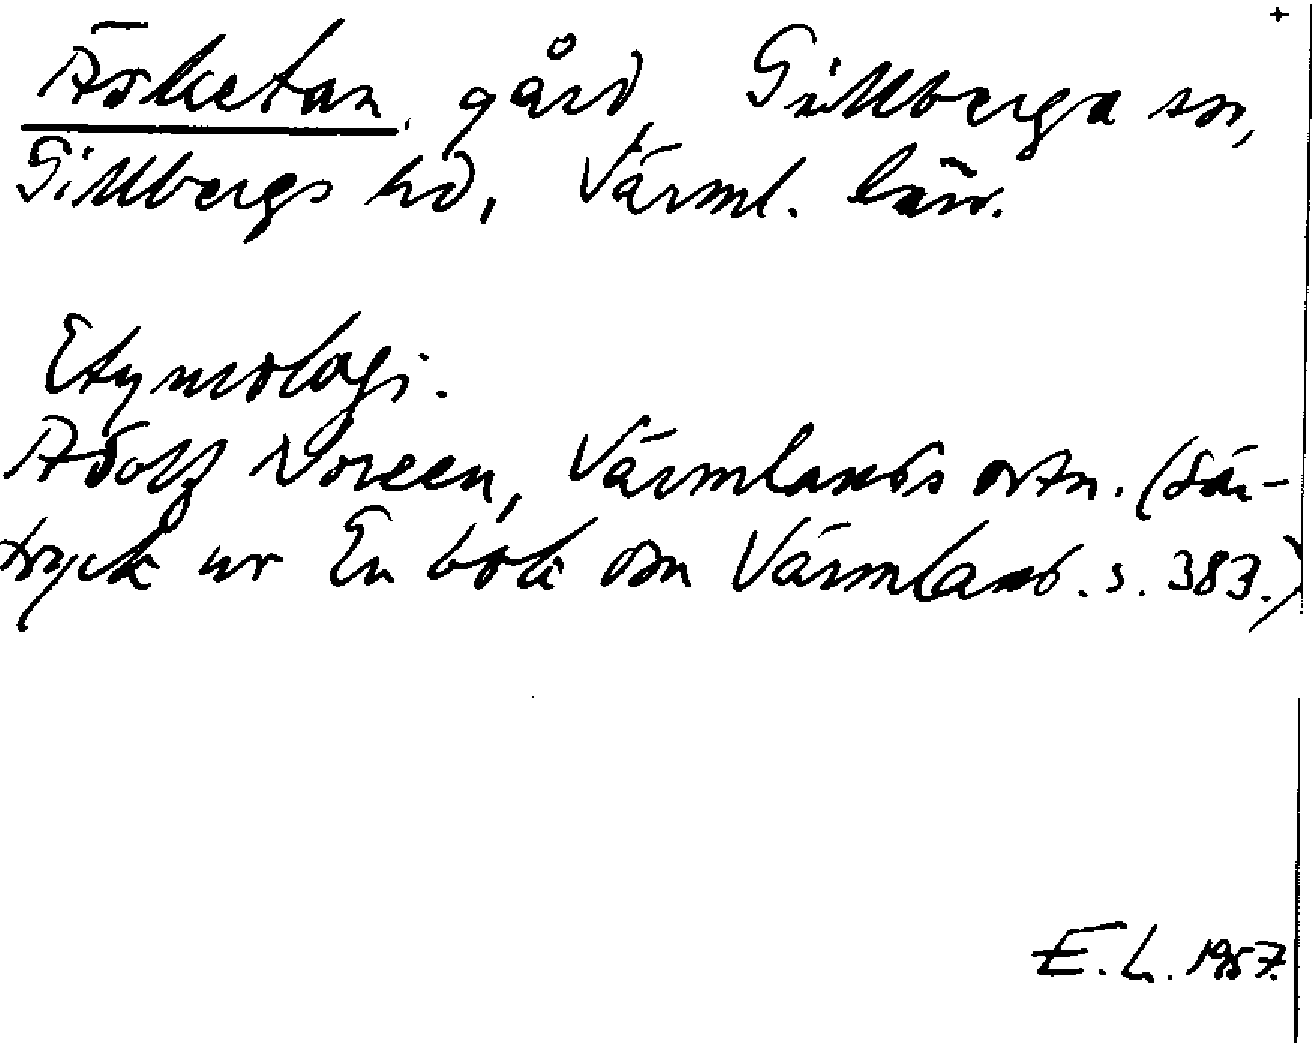 +
Äsketan, gård, Gillberga sn,
Gillbergs hd, Värml. län.
Etymologi.
Adolf Noreen, Värmlands ortn. (Sär-
tryck ur En bok om Värmland. s. 383.)
E. L. 1957.